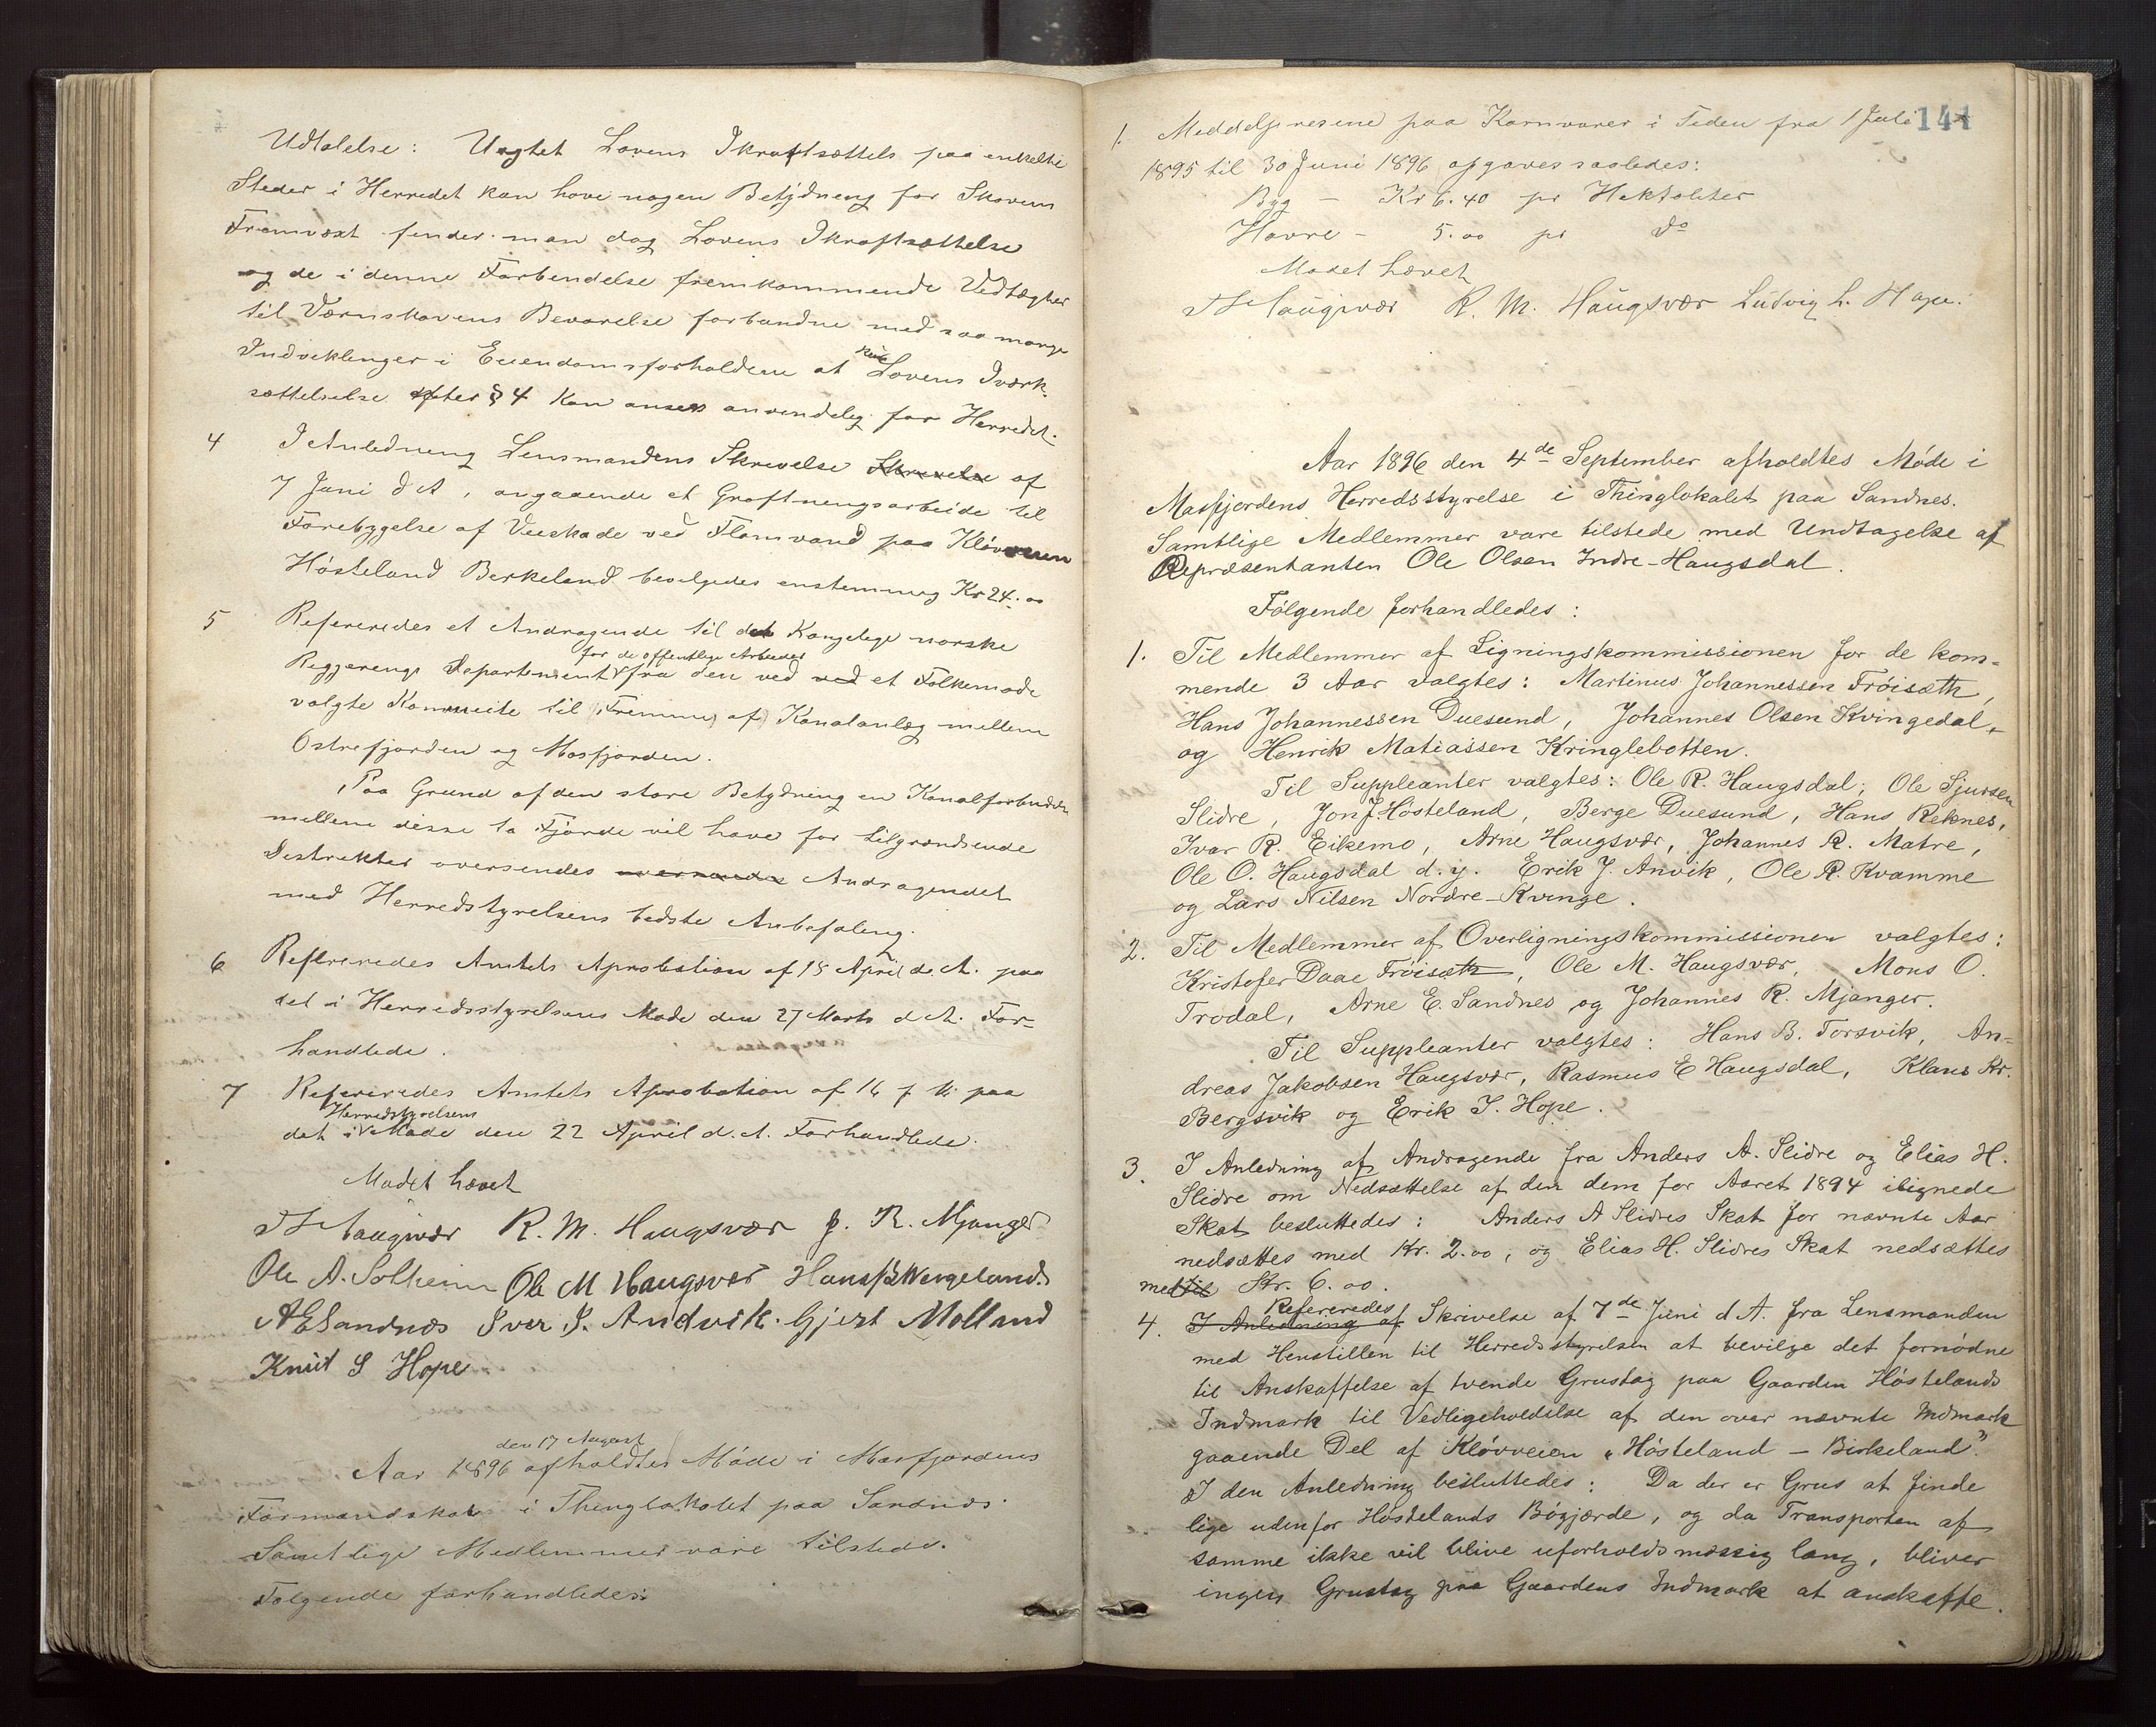 Udtalelse: Uagtet Lovens Ikraftsættels paa enkelte
Steder i Herredet kan have nogen Betydning for Skovens
Fremvæxt finder man dog Lovens Ikraftsættelse
og de i denne Forbindelse fremkommende Vedtægter
til Værnskovens Bevarelse forbundne med saa mange
Indviklinger i Eiendomsforholdene at Lovens Iværk-
sættelselse efter § 4 kan ansees anvendelig for Herredet.
4 I Anledning Lensmandens Skrivelse Skrivelse af
7 Juni d A, angaaende et Grøftningsarbeide til
Forebygelse af Veiskade ved Flomvand paa Kløvveien
Høsteland Berkeland bevilgedes enstemmig Kr 24.00
5 Refereredes et Andragende til det Kongelige norske
for de offentlige Arbeider
Regjerings Departement fra den ved ved et Folkemøde
valgte Kommite til Fremme af Kanalanlæg mellem
Ostrefjorden og Masfjorden.
Paa Grund af den store Betydning en Kanalforbindelse
mellem disse to Fjorde vil have for tilgrændsende
Destrikter oversendes oversendes Andragendet
med Herredstyrelsens bedste Anbefaling.
6 Refereredes Amtets Aprobation af 18 April d. A. paa
det i Herredsstyrelsens Møde den 27 Marts d A. For-
handlede.
7 Refereredes Amtets Aprobation af 16 f M. paa
Herredstyrelsens
det i Møde den 22 April d. A. Forhandlede.
Mødet hævet
Haugsvær R. M. Haugsvær J. R. Mjanger
Ole A. Solheim Ole M Haugsvær Hans Wergeland.
A E Sandnes Iver J. Andvik. Gjert Molland
Knut S Hope
den 17 August
Aar 1896 afholdtes Møde i Masfjordens
Formandskab i Thinglokalet paa Sandnes.
Samtlige Medlemmer vare tilstede.
Følgende forhandledes:
141
1. Middelpresene paa Kornvarer i Tiden fra 1 Juli
1895 til 30 Juni 1896 opgaves saaledes:
Byg – Kr 6.40 pr Hektoliter
Havre – 5.00 pr do
Mødet hævet
Haugsvær R. M. Haugsvær Ludvig L. Hope.
Aar 1896 den 4de September afholdtes Møde i
Masfjordens Herredsstyrelse i Thinglokalet paa Sandnes.
Samtlige Medlemmer vare tilstede med Undtagelse af
Repræsentanten Ole Olsen Indre-Haugsdal.
Følgende forhandledes:
1. Til Medlemmer af Ligningskommissionen for de kom-
mende 3 Aar valgtes: Martinus Johannessen Frøisæth,
Hans Johannessen Duesund, Johannes Olsen Kvingedal,
og Henrik Matiassen Kringlebotten.
Til Suppleanter valgtes: Ole R. Haugsdal, Ole Sjursen
Slidre, Jon J. Høsteland, Berge Duesund, Hans Reknes,
Ivar R. Eikemo, Arne Haugsvær, Johannes R. Matre,
Ole O. Haugsdal d. y. Erik J. Anvik, Ole R. Kvamme
og Lars Nilsen Nordre-Kvinge.
2. Til Medlemmer af Overligningskommissionen valgtes:
Kristofer Daae Frøisæth, Ole M. Haugsvær, Mons O.
Trodal, Arne E. Sandnes og Johannes R. Mjanger.
Til Suppleanter valgtes: Hans B. Torsvik, An-
dreas Jakobsen Haugsvær, Rasmus E Haugsdal, Klaus Kr.
Bergsvik og Erik I. Hope.
3. I Anledning af Andragende fra Anders A. Slidre og Elias H.
Slidre om Nedsættelse af den dem for Aaret 1894 ilignede
Skat besluttedes: Anders A Slidres Skat for nævnte Aar
nedsættes med Kr. 2.00, og Elias H. Slidres Skat nedsættes
med til Kr. 6.00.
Refereredes
4. I Anledning af Skrivelse af 7de Juni d A. fra Lensmanden
med Henstillen til Herredsstyrelsen at bevilge det fornødne
til Anskaffelse af tvende Grustag paa Gaarden Høstelands
Indmark til Vedligeholdelse af den over nævnte Indmark
gaaende Del af Kløvveien „Høsteland – Birkeland".
I den Anledning besluttedes: Da der er Grus at finde
lige udenfor Høstelands Bøgjærde, og da Transporten af
samme ikke vil blive uforholdsmæssig lang, bliver
ingen Grustag paa Gaardens Indmark at anskaffe.